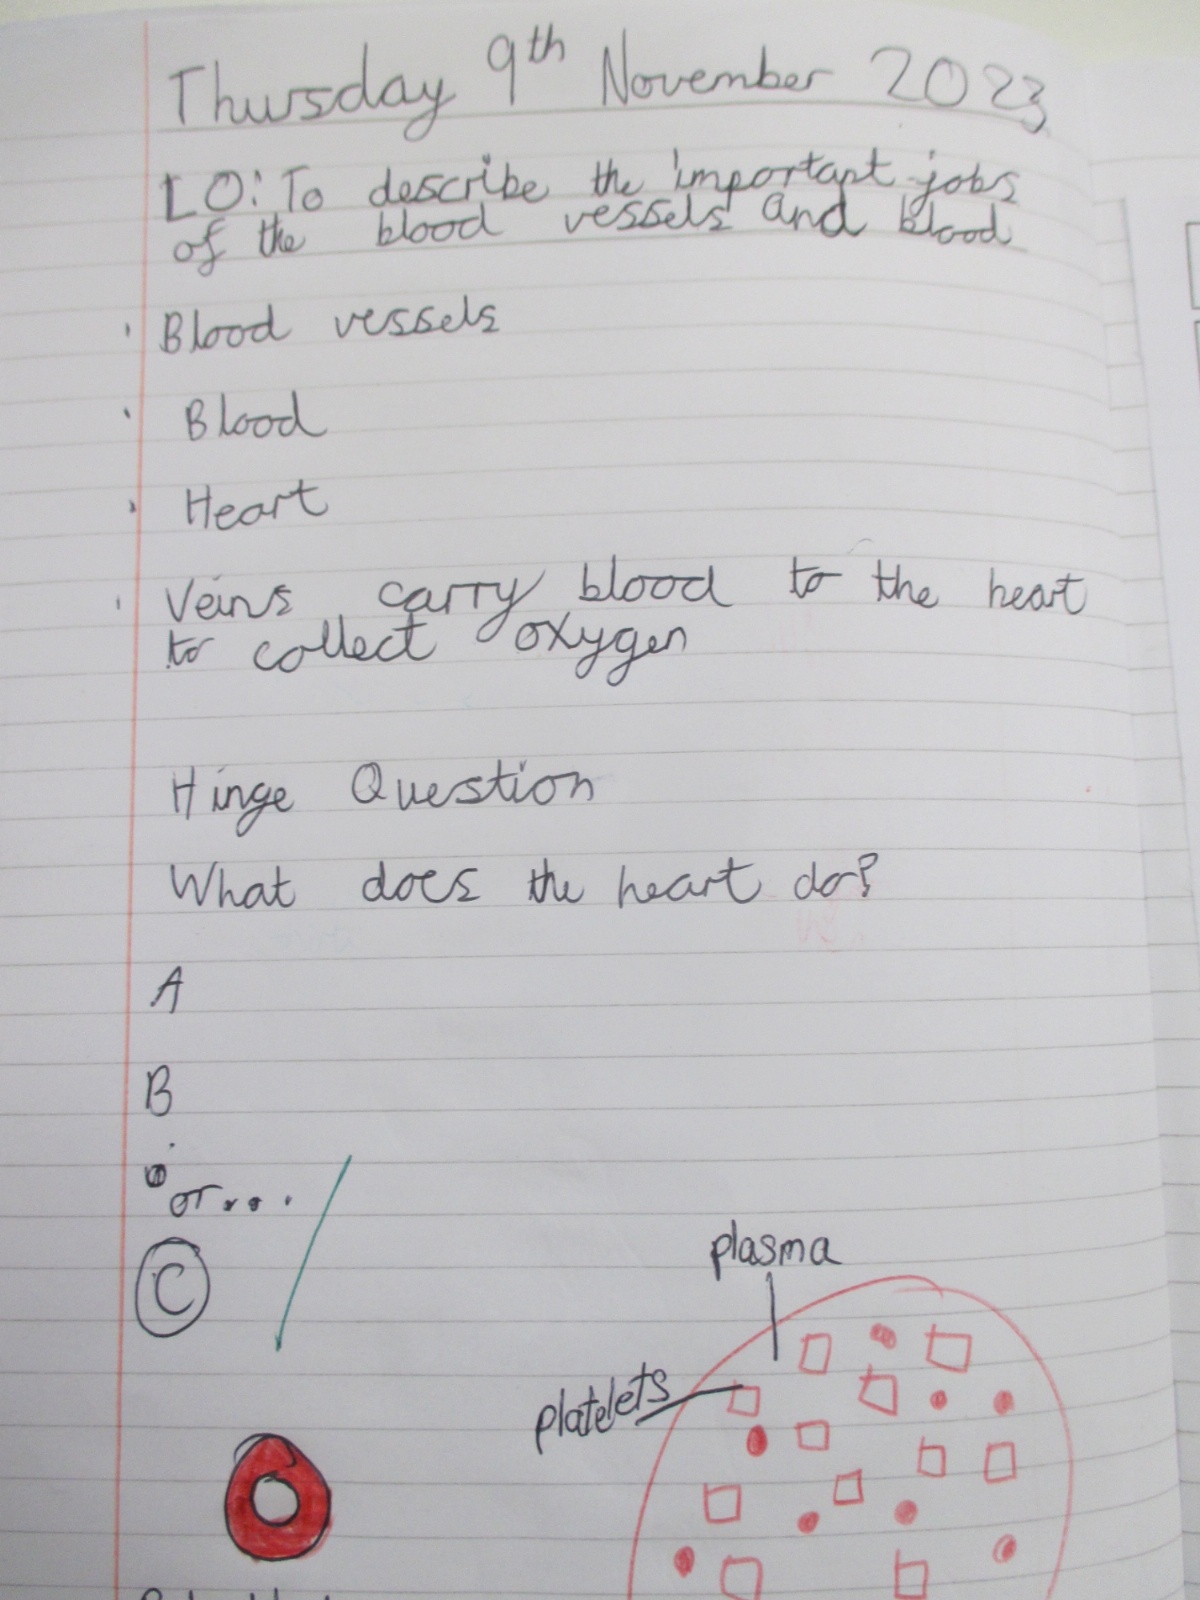 Thursday 9th November 2023
LO: To describe the important jobs
of the blood vessels and blood
· Blood vessels
· Blood
· Heart
· Veins carry blood to the heart
to collect oxygen
Hinge Question
What does the heart do?
A
B
or...
C
plasma
platelets